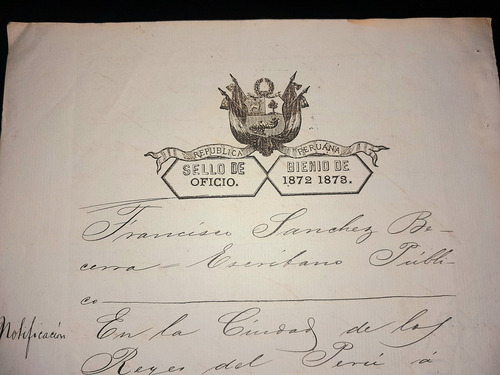 REPUBLICA PERUANA
SELLO DE OFICIO.
BIENIO DE 1872 1873.
Francisco Sanchez Be-
cerra Escribano Públi-
co
Notificación
En la Ciudad de los
Reyes del Perú á